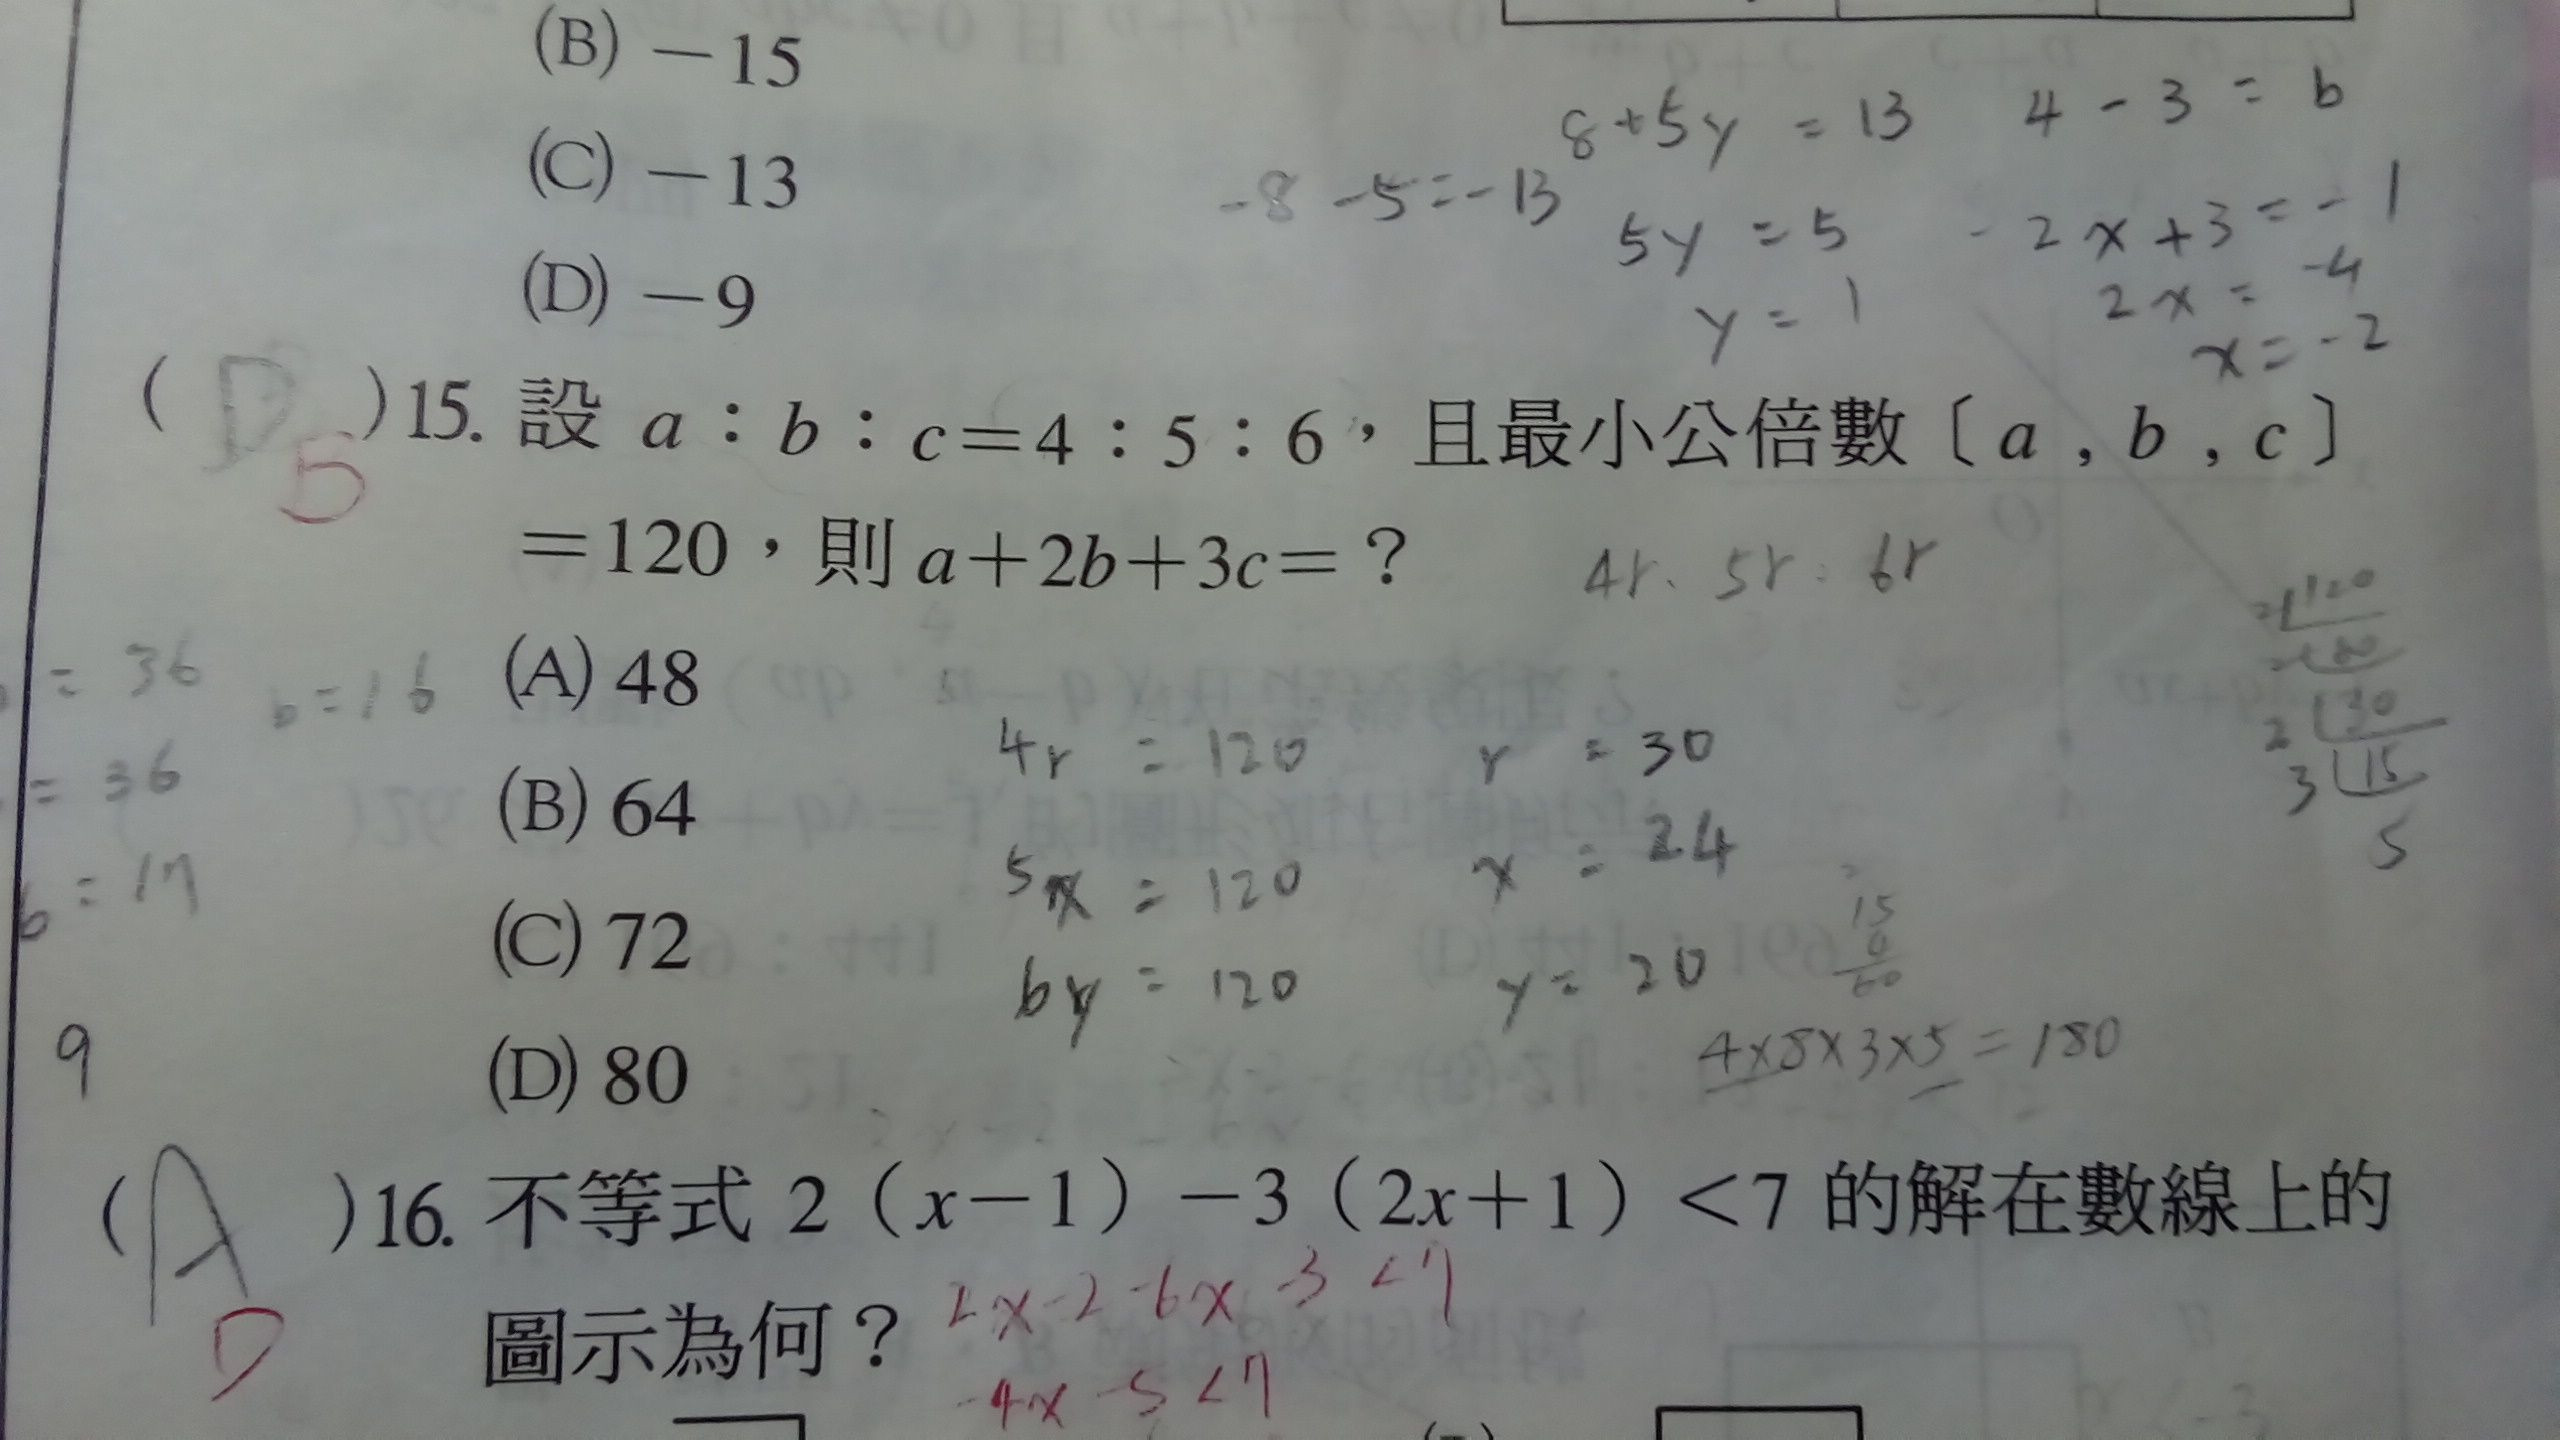 (B) －15
(C) －13
(D) －9
8+5y = 13
4 - 3 = b
-8 -5 = -13
5y = 5
2x+3 = -1
y = 1
2x = -4
x = -2
( D )15. 設 a：b：c＝4：5：6，且最小公倍數〔a , b , c〕
＝120，則 a＋2b＋3c＝？
4r 5r 6r
(A) 48
(B) 64
(C) 72
(D) 80
= 36
b=16
= 36
b = 17
9
4r = 120 r = 30
5x = 120 x = 24
6y = 120 y = 20
2 120
2 60
2 30
3 15
5
15
60
4x8x3x5 = 180
( A )16. 不等式 2（x－1）－3（2x＋1）＜7 的解在數線上的
D
圖示為何？
2x-2-6x-3<7
-4x-5<7